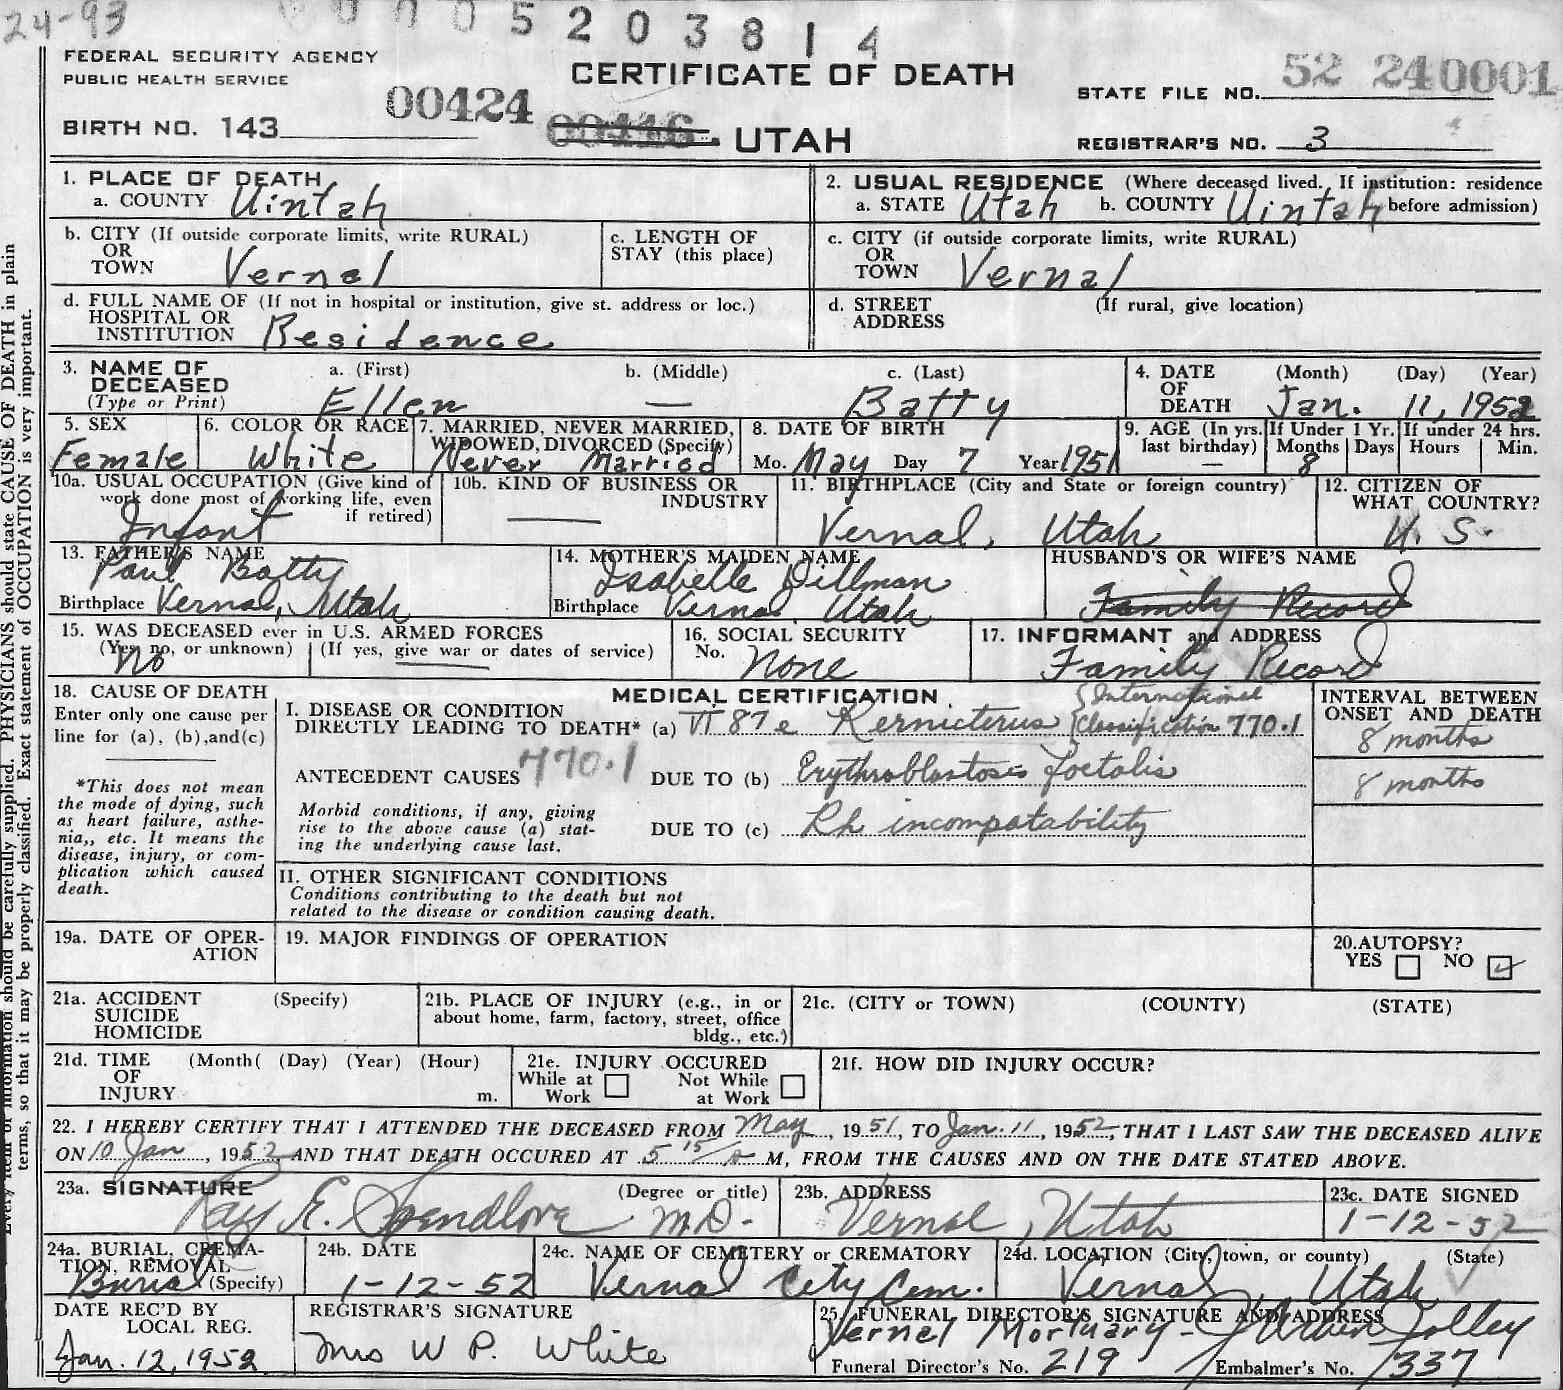 24-93
0 0 0 5 2 0 3 8 1 4
FEDERAL SECURITY AGENCY
PUBLIC HEALTH SERVICE
CERTIFICATE OF DEATH
STATE FILE NO. 52 240001
BIRTH NO. 143
00424 00116 UTAH
REGISTRAR'S NO. 3
1. PLACE OF DEATH
a. COUNTY Uintah
2. USUAL RESIDENCE (Where deceased lived. If institution: residence
a. STATE Utah b. COUNTY Uintah before admission)
b. CITY (If outside corporate limits, write RURAL)
OR
TOWN Vernal
c. LENGTH OF
STAY (this place)
c. CITY (if outside corporate limits, write RURAL)
OR
TOWN Vernal
d. FULL NAME OF (If not in hospital or institution, give st. address or loc.)
HOSPITAL OR
INSTITUTION Residence
d. STREET (If rural, give location)
ADDRESS
3. NAME OF
DECEASED
(Type or Print)
a. (First) b. (Middle) c. (Last)
Ellen — Batty
4. DATE (Month) (Day) (Year)
OF
DEATH Jan. 11, 1952
5. SEX
Female
6. COLOR OR RACE
White
7. MARRIED, NEVER MARRIED,
WIDOWED, DIVORCED (Specify)
Never Married
8. DATE OF BIRTH
Mo. May Day 7 Year 1951
9. AGE (In yrs.
last birthday)
—
If Under 1 Yr.
Months Days
8
If under 24 hrs.
Hours Min.
10a. USUAL OCCUPATION (Give kind of
work done most of working life, even
if retired)
Infant
10b. KIND OF BUSINESS OR
INDUSTRY
—
11. BIRTHPLACE (City and State or foreign country)
Vernal, Utah
12. CITIZEN OF
WHAT COUNTRY?
U. S.
13. FATHER'S NAME
Paul Batty
Birthplace Vernal, Utah
14. MOTHER'S MAIDEN NAME
Isabelle Dillman
Birthplace Vernal Utah
HUSBAND'S OR WIFE'S NAME
Family Record
15. WAS DECEASED ever in U.S. ARMED FORCES
(Yes, no, or unknown) (If yes, give war or dates of service)
No —
16. SOCIAL SECURITY
No. None
17. INFORMANT and ADDRESS
Family Record
18. CAUSE OF DEATH
Enter only one cause per
line for (a), (b),and(c)
*This does not mean
the mode of dying, such
as heart failure, asthe-
nia,, etc. It means the
disease, injury, or com-
plication which caused
death.
MEDICAL CERTIFICATION
I. DISEASE OR CONDITION
DIRECTLY LEADING TO DEATH* (a) VI 87e Kernicterus {International Classification 770.1
ANTECEDENT CAUSES 770.1 DUE TO (b) Erythroblastosis foetalis
Morbid conditions, if any, giving
rise to the above cause (a) stat-
ing the underlying cause last.
DUE TO (c) Rh incompatability
INTERVAL BETWEEN
ONSET AND DEATH
8 months
8 months
II. OTHER SIGNIFICANT CONDITIONS
Conditions contributing to the death but not
related to the disease or condition causing death.
19a. DATE OF OPER-
ATION
19. MAJOR FINDINGS OF OPERATION
20.AUTOPSY?
YES NO ✓
21a. ACCIDENT (Specify)
SUICIDE
HOMICIDE
21b. PLACE OF INJURY (e.g., in or
about home, farm, factory, street, office
bldg., etc.)
21c. (CITY or TOWN) (COUNTY) (STATE)
21d. TIME (Month( (Day) (Year) (Hour)
OF
INJURY m.
21e. INJURY OCCURED
While at Work Not While at Work
21f. HOW DID INJURY OCCUR?
22. I HEREBY CERTIFY THAT I ATTENDED THE DECEASED FROM May, 1951, TO Jan. 11, 1952, THAT I LAST SAW THE DECEASED ALIVE
ON 10 Jan, 1952 AND THAT DEATH OCCURED AT 5 15/a M, FROM THE CAUSES AND ON THE DATE STATED ABOVE.
23a. SIGNATURE (Degree or title)
Ray E. Spendlove M.D.
23b. ADDRESS
Vernal, Utah
23c. DATE SIGNED
1-12-52
24a. BURIAL, CREMA-
TION, REMOVAL
Burial (Specify)
24b. DATE
1-12-52
24c. NAME OF CEMETERY or CREMATORY
Vernal City Cem.
24d. LOCATION (City, town, or county) (State)
Vernal, Utah
DATE REC'D BY
LOCAL REG.
Jan. 12, 1952
REGISTRAR'S SIGNATURE
Mrs W P. White
25. FUNERAL DIRECTOR'S SIGNATURE AND ADDRESS
Vernal Mortuary - Jolley
Funeral Director's No. 219 Embalmer's No. 337
Every item of information should be carefully supplied. PHYSICIANS should state CAUSE OF DEATH in plain
terms, so that it may be properly classified. Exact statement of OCCUPATION is very important.